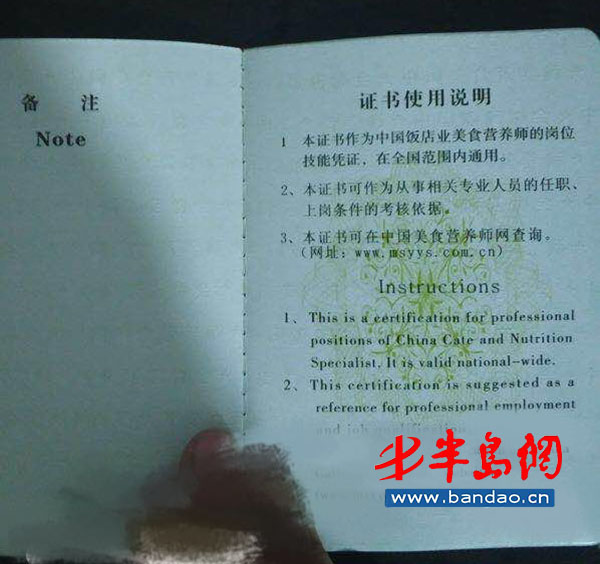 备 注
Note
证书使用说明
1 本证书作为中国饭店业美食营养师的岗位
技能凭证，在全国范围内通用。
2、本证书可作为从事相关专业人员的任职、
上岗条件的考核依据。
3、本证书可在中国美食营养师网查询。
（网址：www.msyys.com.cn）
Instructions
1、This is a certification for professional
positions of China Cate and Nutrition
Specialist. It is valid national-wide.
2、This certification is suggested as a
reference for professional employment
and job qualification.
半岛網
www.bandao.cn